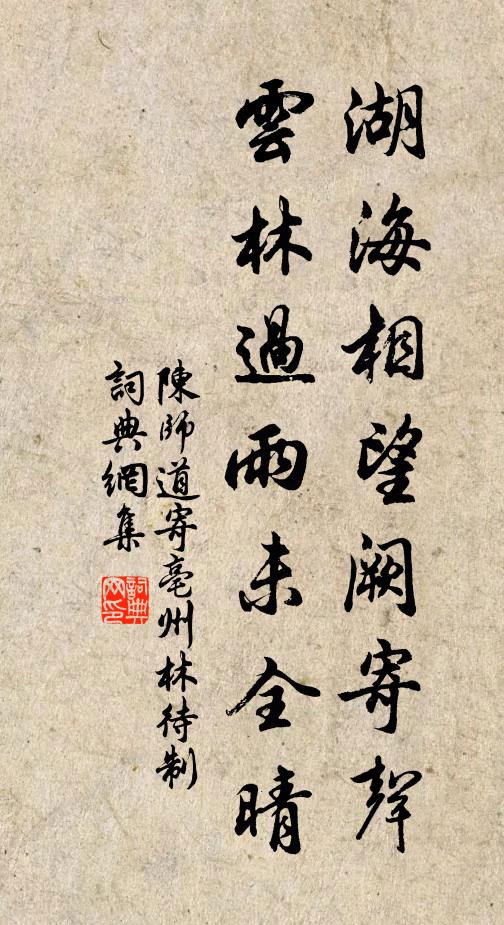 湖海相望闕寄聲
雲林過雨未全晴
陳師道寄亳州林待制
詞典網集
詞典网印